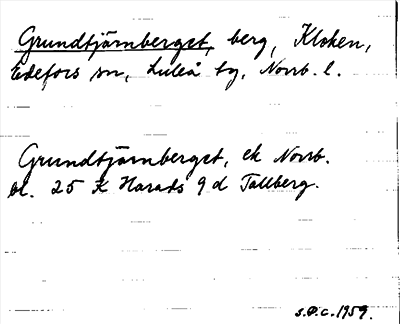 Grundtjärnberget, berg, Kloken,
Edefors sn, Luleå tg, Norrb. l.
Grundtjärnberget, ek Norrb.
bl. 25 K Harads 9 d Tallberg.
S.O.C. 1959.